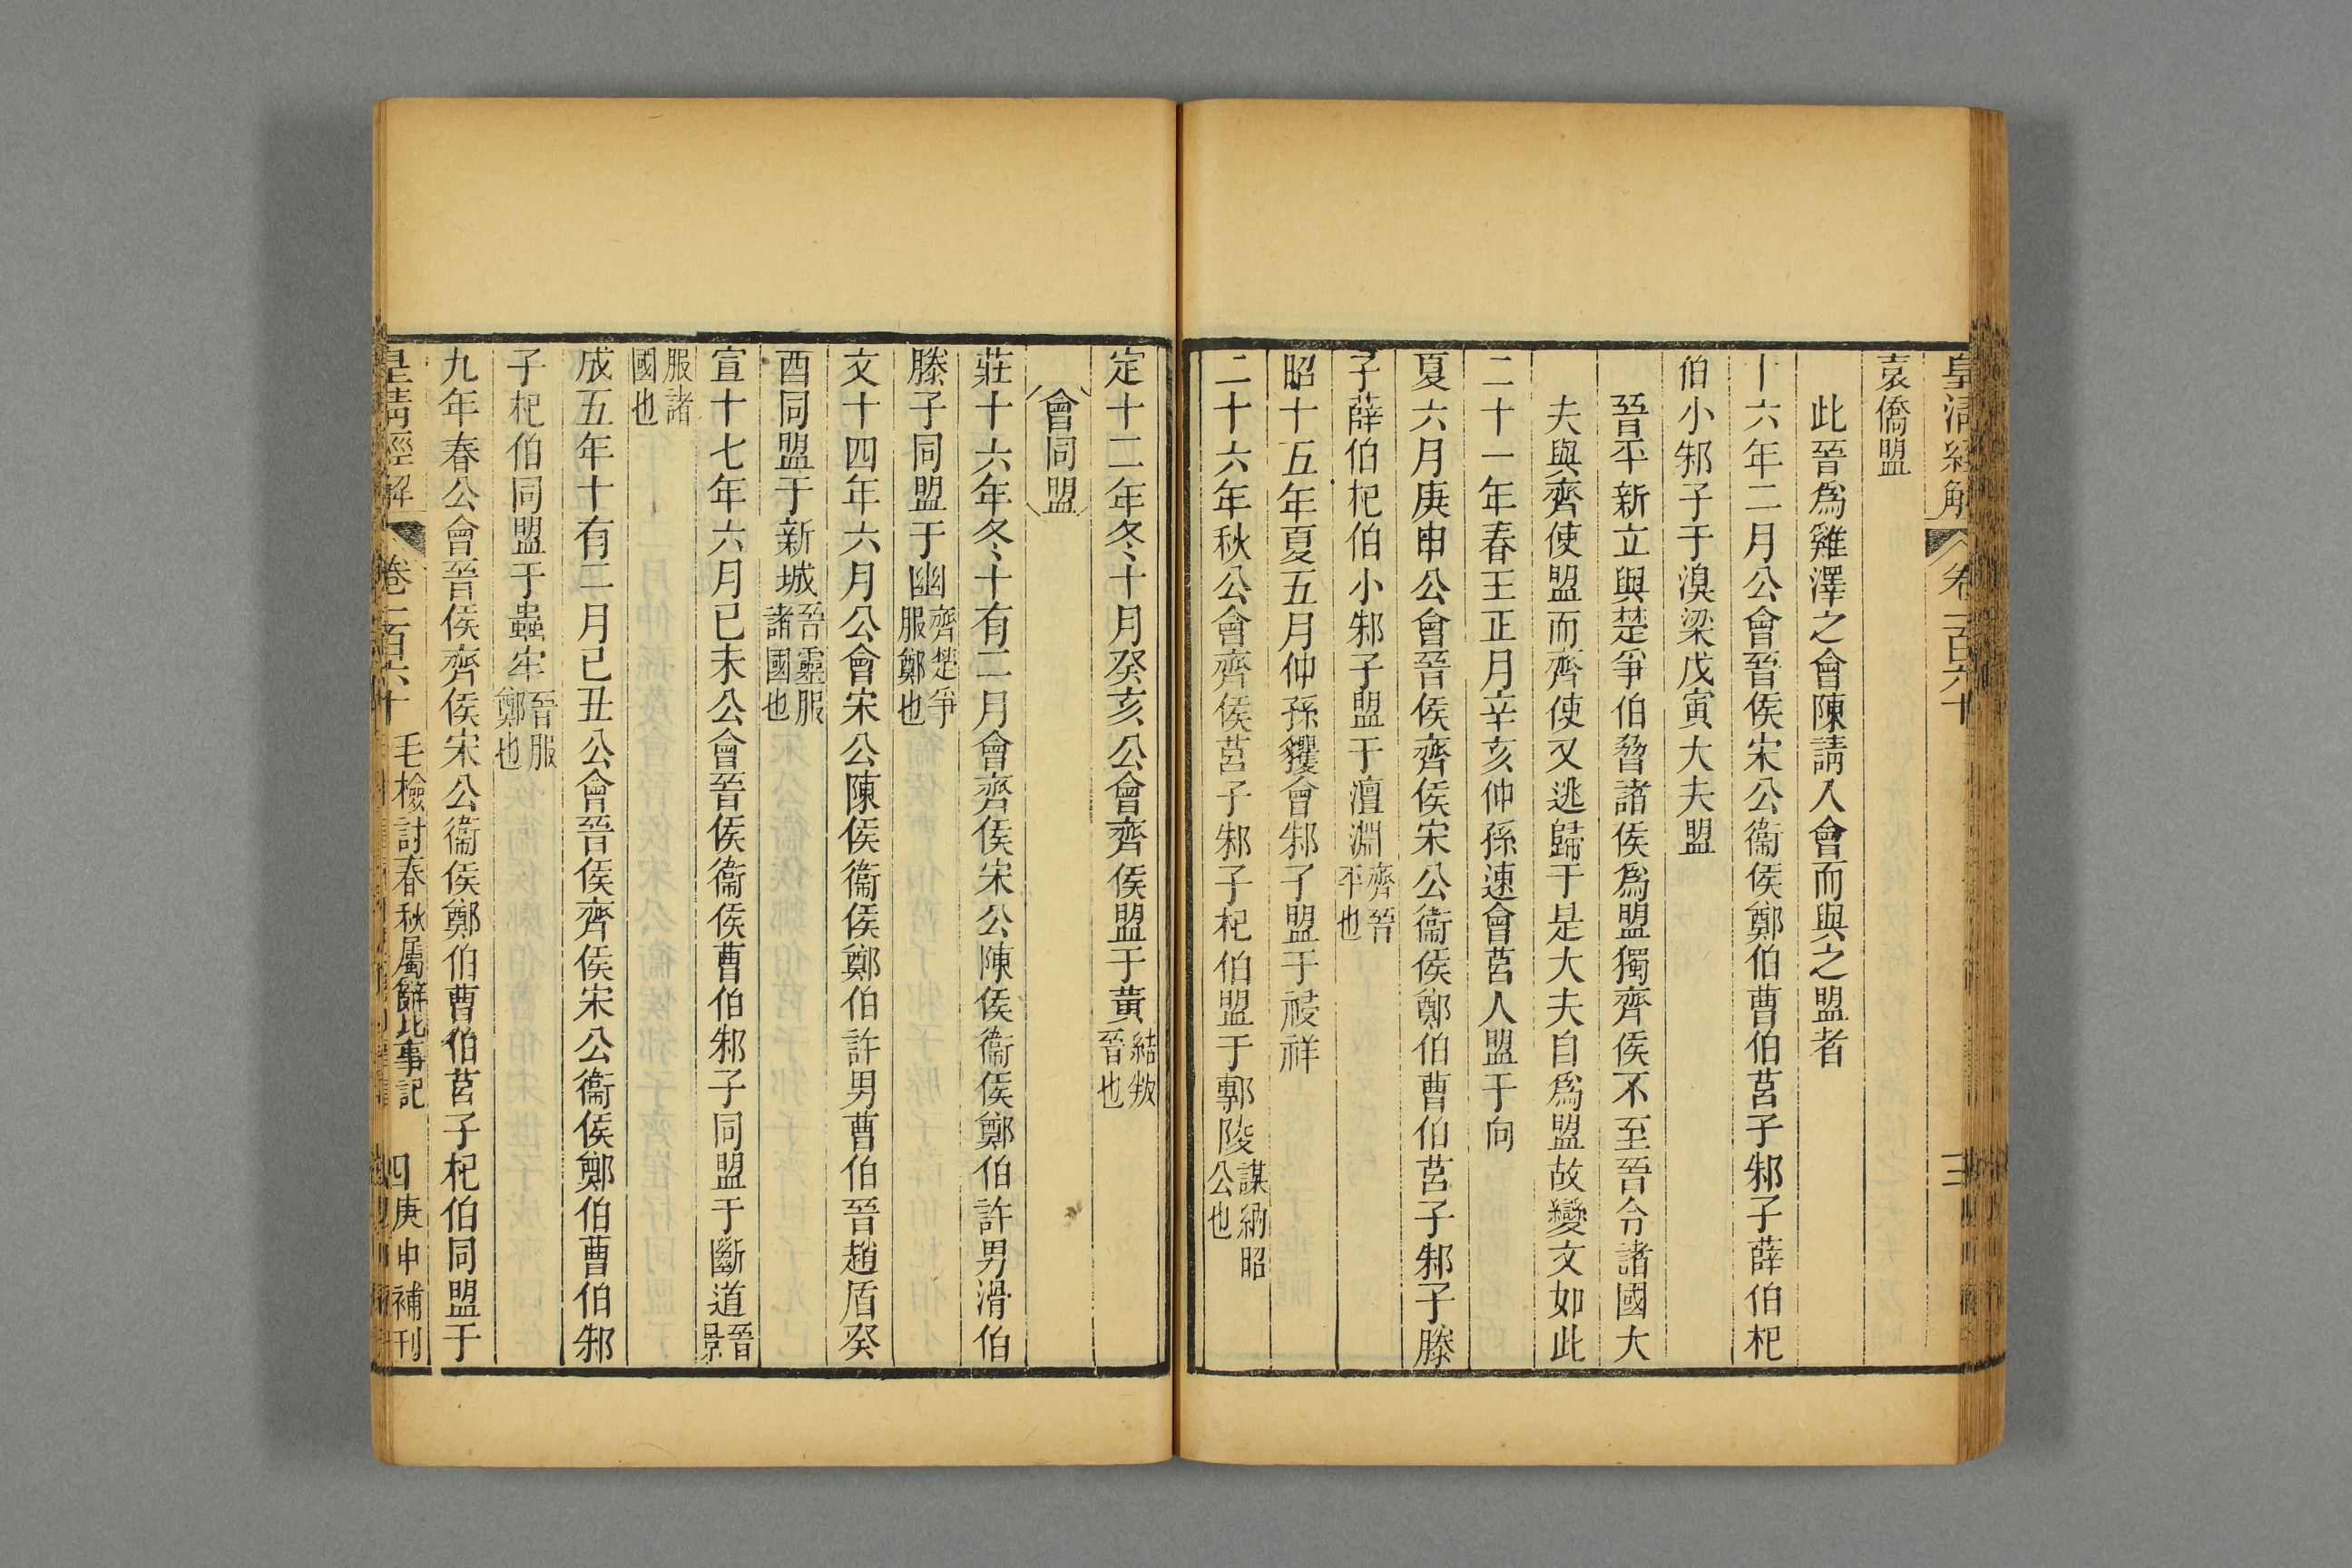 皇清經解 卷一百六十 三
袁僑盟
此晉爲雞澤之會陳請入會而與之盟者
十六年二月公會晉侯宋公衞侯鄭伯曹伯莒子邾子薛伯杞
伯小邾子于溴梁戊寅大夫盟
晉平新立與楚爭伯脅諸侯爲盟獨齊侯不至晉令諸國大
夫與齊使盟而齊使又逃歸于是大夫自爲盟故變文如此
二十一年春王正月辛亥仲孫速會莒人盟于向
夏六月庚申公會晉侯齊侯宋公衞侯鄭伯曹伯莒子邾子滕
子薛伯杞伯小邾子盟于澶淵齊晉平也
昭十五年夏五月仲孫貜會邾子盟于祲祥
二十六年秋公會齊侯莒子邾子杞伯盟于鄟陵謀納昭公也
定十二年冬十月癸亥公會齊侯盟于黃結叛晉也
會同盟
莊十六年冬十有二月會齊侯宋公陳侯衞侯鄭伯許男滑伯
滕子同盟于幽齊楚爭服鄭也
文十四年六月公會宋公陳侯衞侯鄭伯許男曹伯晉趙盾癸
酉同盟于新城晉靈服諸國也
宣十七年六月已未公會晉侯衞侯曹伯邾子同盟于斷道晉景
服諸國也
成五年十有二月已丑公會晉侯齊侯宋公衞侯鄭伯曹伯邾
子杞伯同盟于蟲牢晉服鄭也
九年春公會晉侯齊侯宋公衞侯鄭伯曹伯莒子杞伯同盟于
皇清經解 卷一百六十 毛檢討春秋屬辭比事記 四 庚申補刊